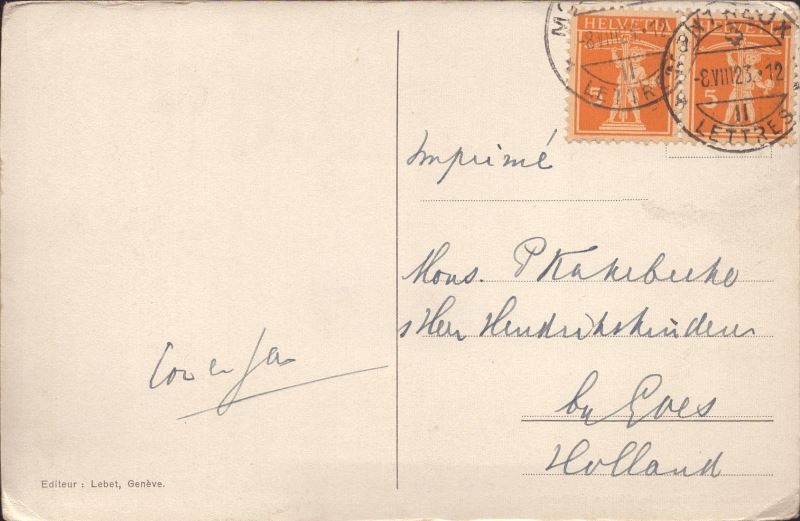 HELVETIA HELVETIA
5 5
MONTREUX
-8.VIII.23.-12
II
LETTRES
Imprimé
Mons. P Kakebeeke
s Heer Hendrikskinderen
by Goes
Holland
Co en Jan
Editeur : Lebet, Genève.